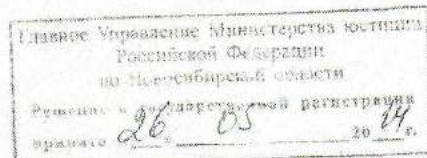 Главное Управление Министерства юстиции
Российской Федерации
по Новосибирской области
Решение о государственной регистрации
принято 26 05 20 14 г.